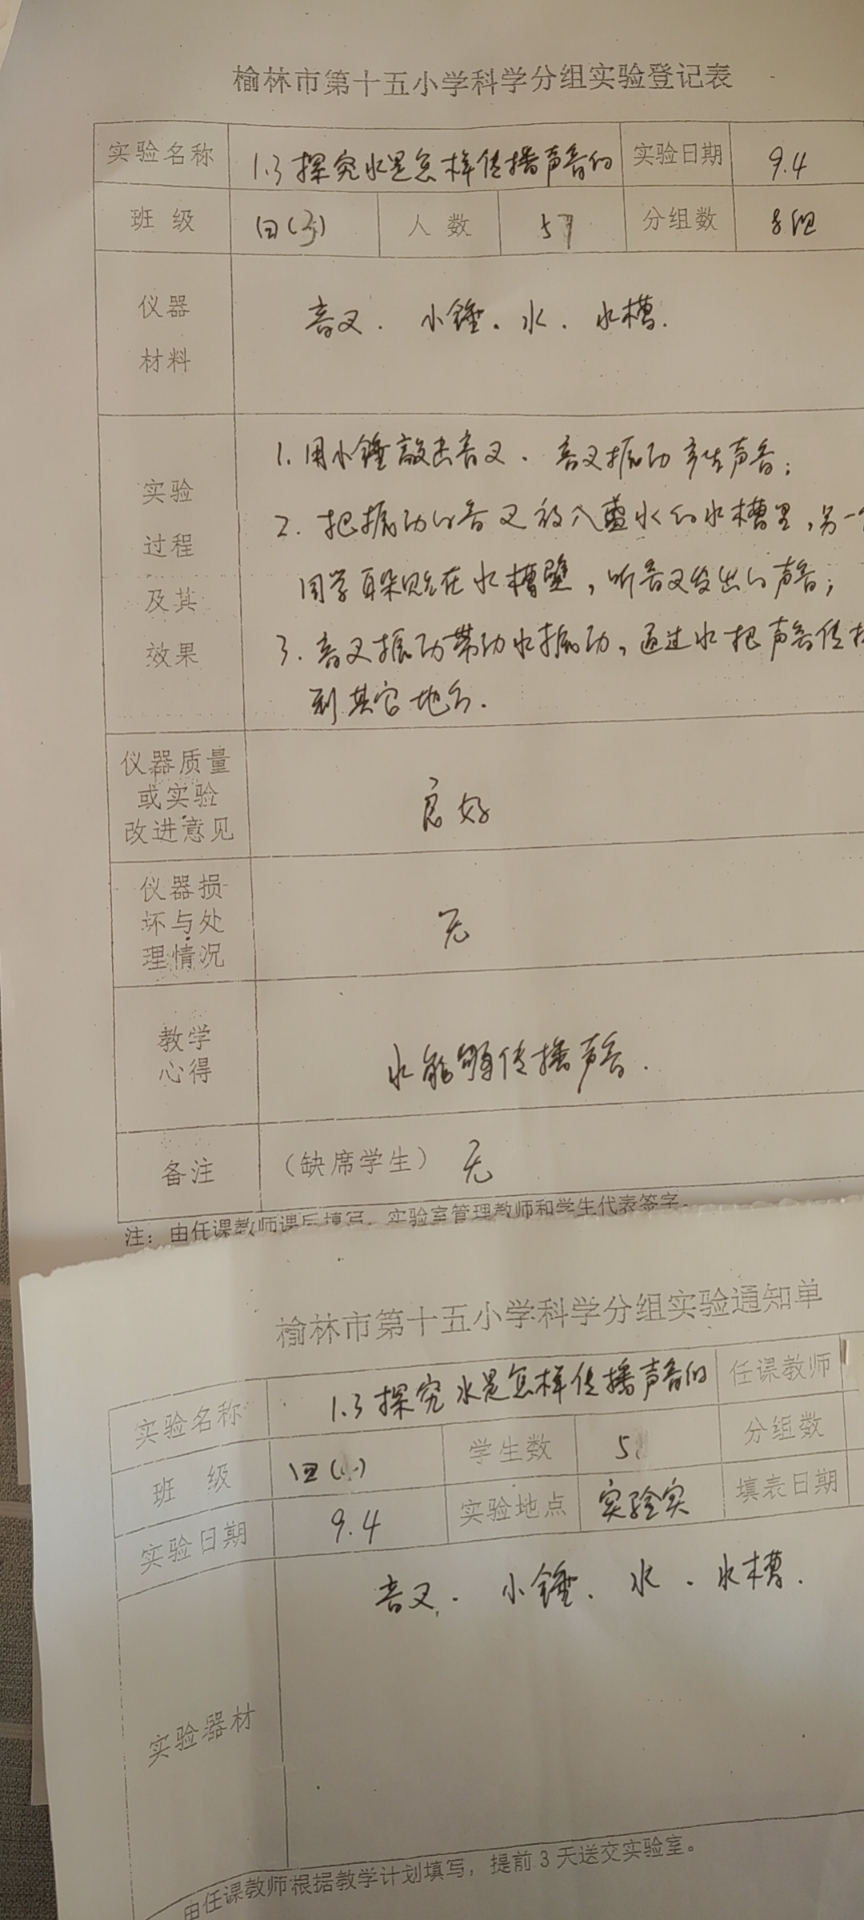 榆林市第十五小学科学分组实验登记表
实验名称 1.3探究水是怎样传播声音的 实验日期 9.4
班 级 四( ) 人 数 5 分组数 8组
仪器
材料
音叉. 小锤. 水. 水槽.
实验
过程
及其
效果
1. 用小锤敲击音叉. 音叉振动产生声音;
2. 把振动的音叉放入盛水的水槽里,另一
同学耳朵贴在水槽壁,听音叉发出的声音;
3. 音叉振动带动水振动,通过水把声音传
到其它地方.
仪器质量
或实验
改进意见
良好
仪器损
坏与处
理情况
无
教学
心得
水能够传播声音.
备注 (缺席学生) 无
注: 由任课教师课后填写,实验室管理教师和学生代表签字。
榆林市第十五小学科学分组实验通知单
实验名称 1.3探究水是怎样传播声音的 任课教师
班 级 四( ) 学生数 5 分组数
实验日期 9.4 实验地点 实验实 填表日期
实验器材 音叉. 小锤. 水. 水槽.
由任课教师根据教学计划填写,提前3天送交实验室。